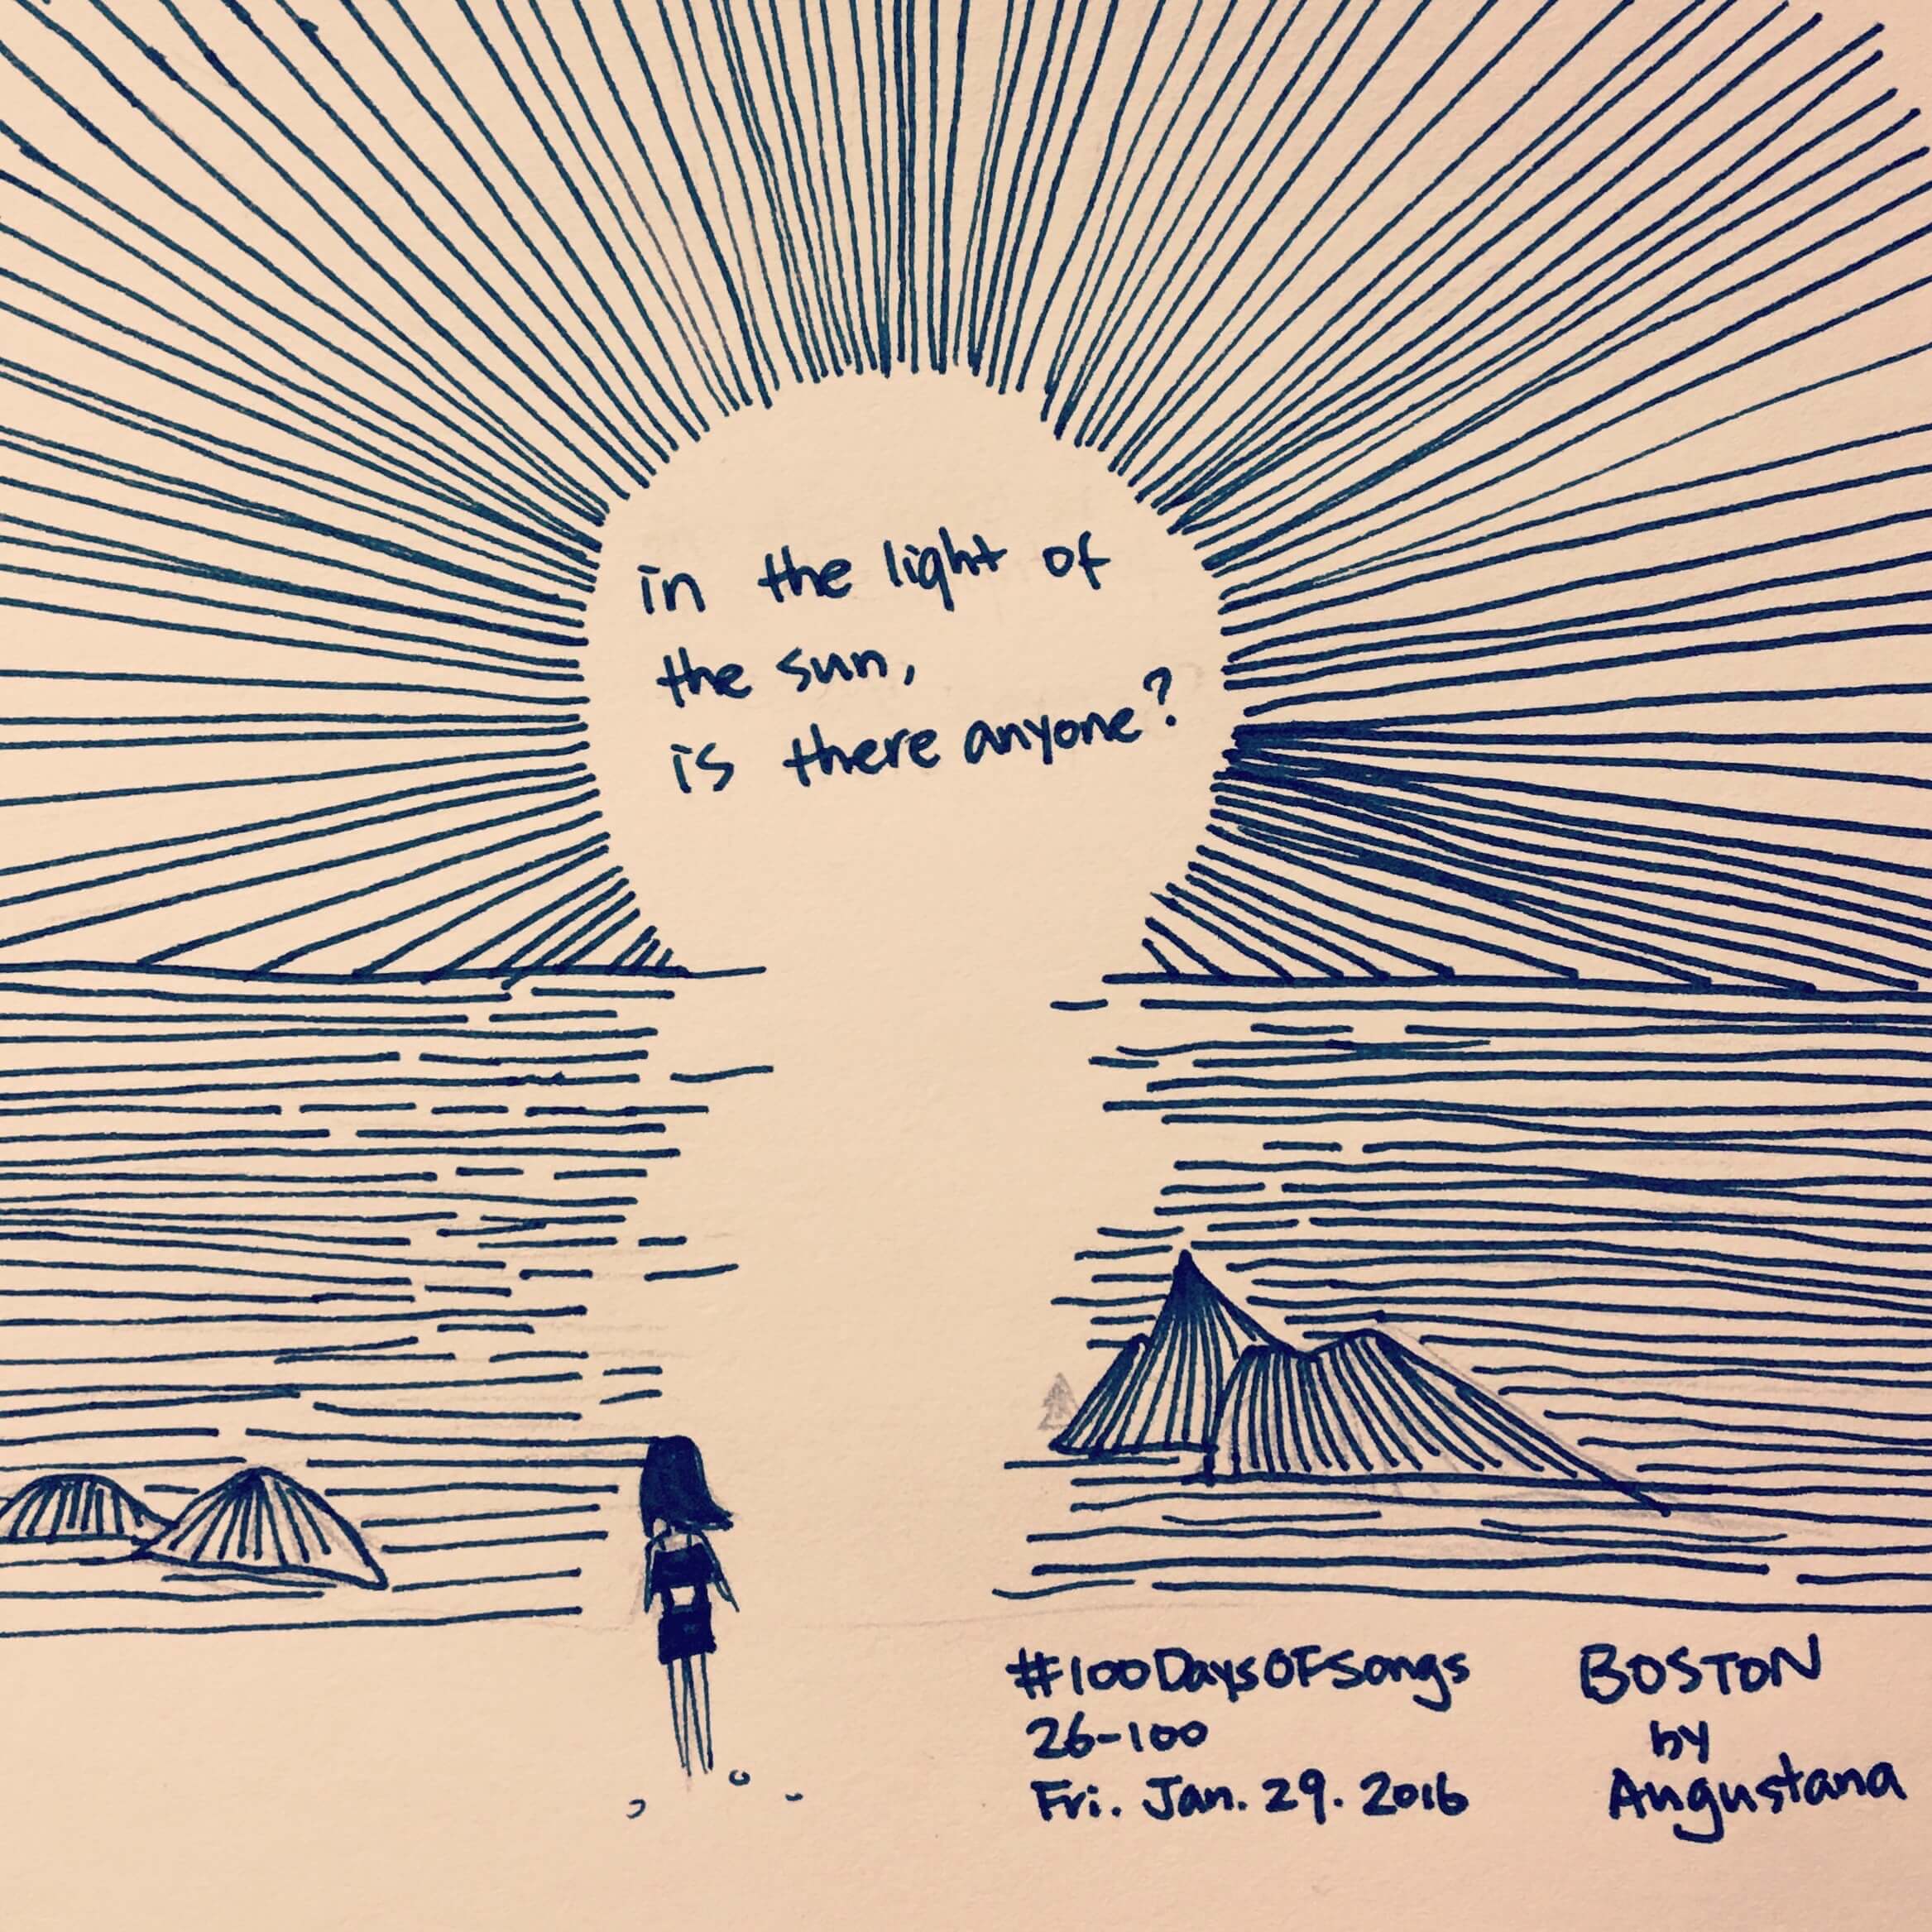 in the light of
the sun,
is there anyone?
#100DaysOfSongs
26-100
Fri. Jan. 29. 2016
BOSTON
by
Augustana